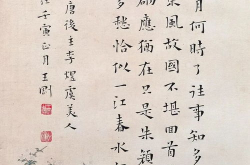 月何時了往事知多
東風故國不堪回首
砌應猶在只是朱顏
多愁恰似一江春水
唐後主李煜虞美人
壬寅正月王剛